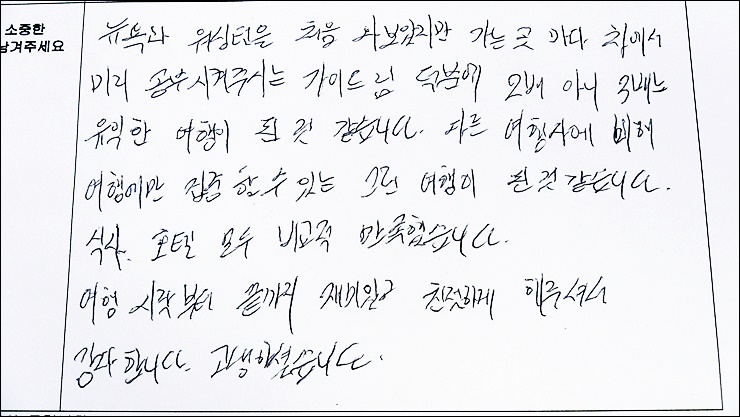 소중한
남겨주세요
뉴욕과 워싱턴을 처음 와보았지만 가는 곳 마다 차에서
미리 공부시켜주시는 가이드님 덕분에 2배 아니 3배는
유익한 여행이 된 것 같습니다. 다른 여행사에 비해
여행에만 집중할 수 있는 그런 여행이 된 것 같습니다.
식사, 호텔 모두 비교적 만족했습니다.
여행 시작부터 끝까지 재미있고 친절하게 해주셔서
감사합니다. 고생하셨습니다.